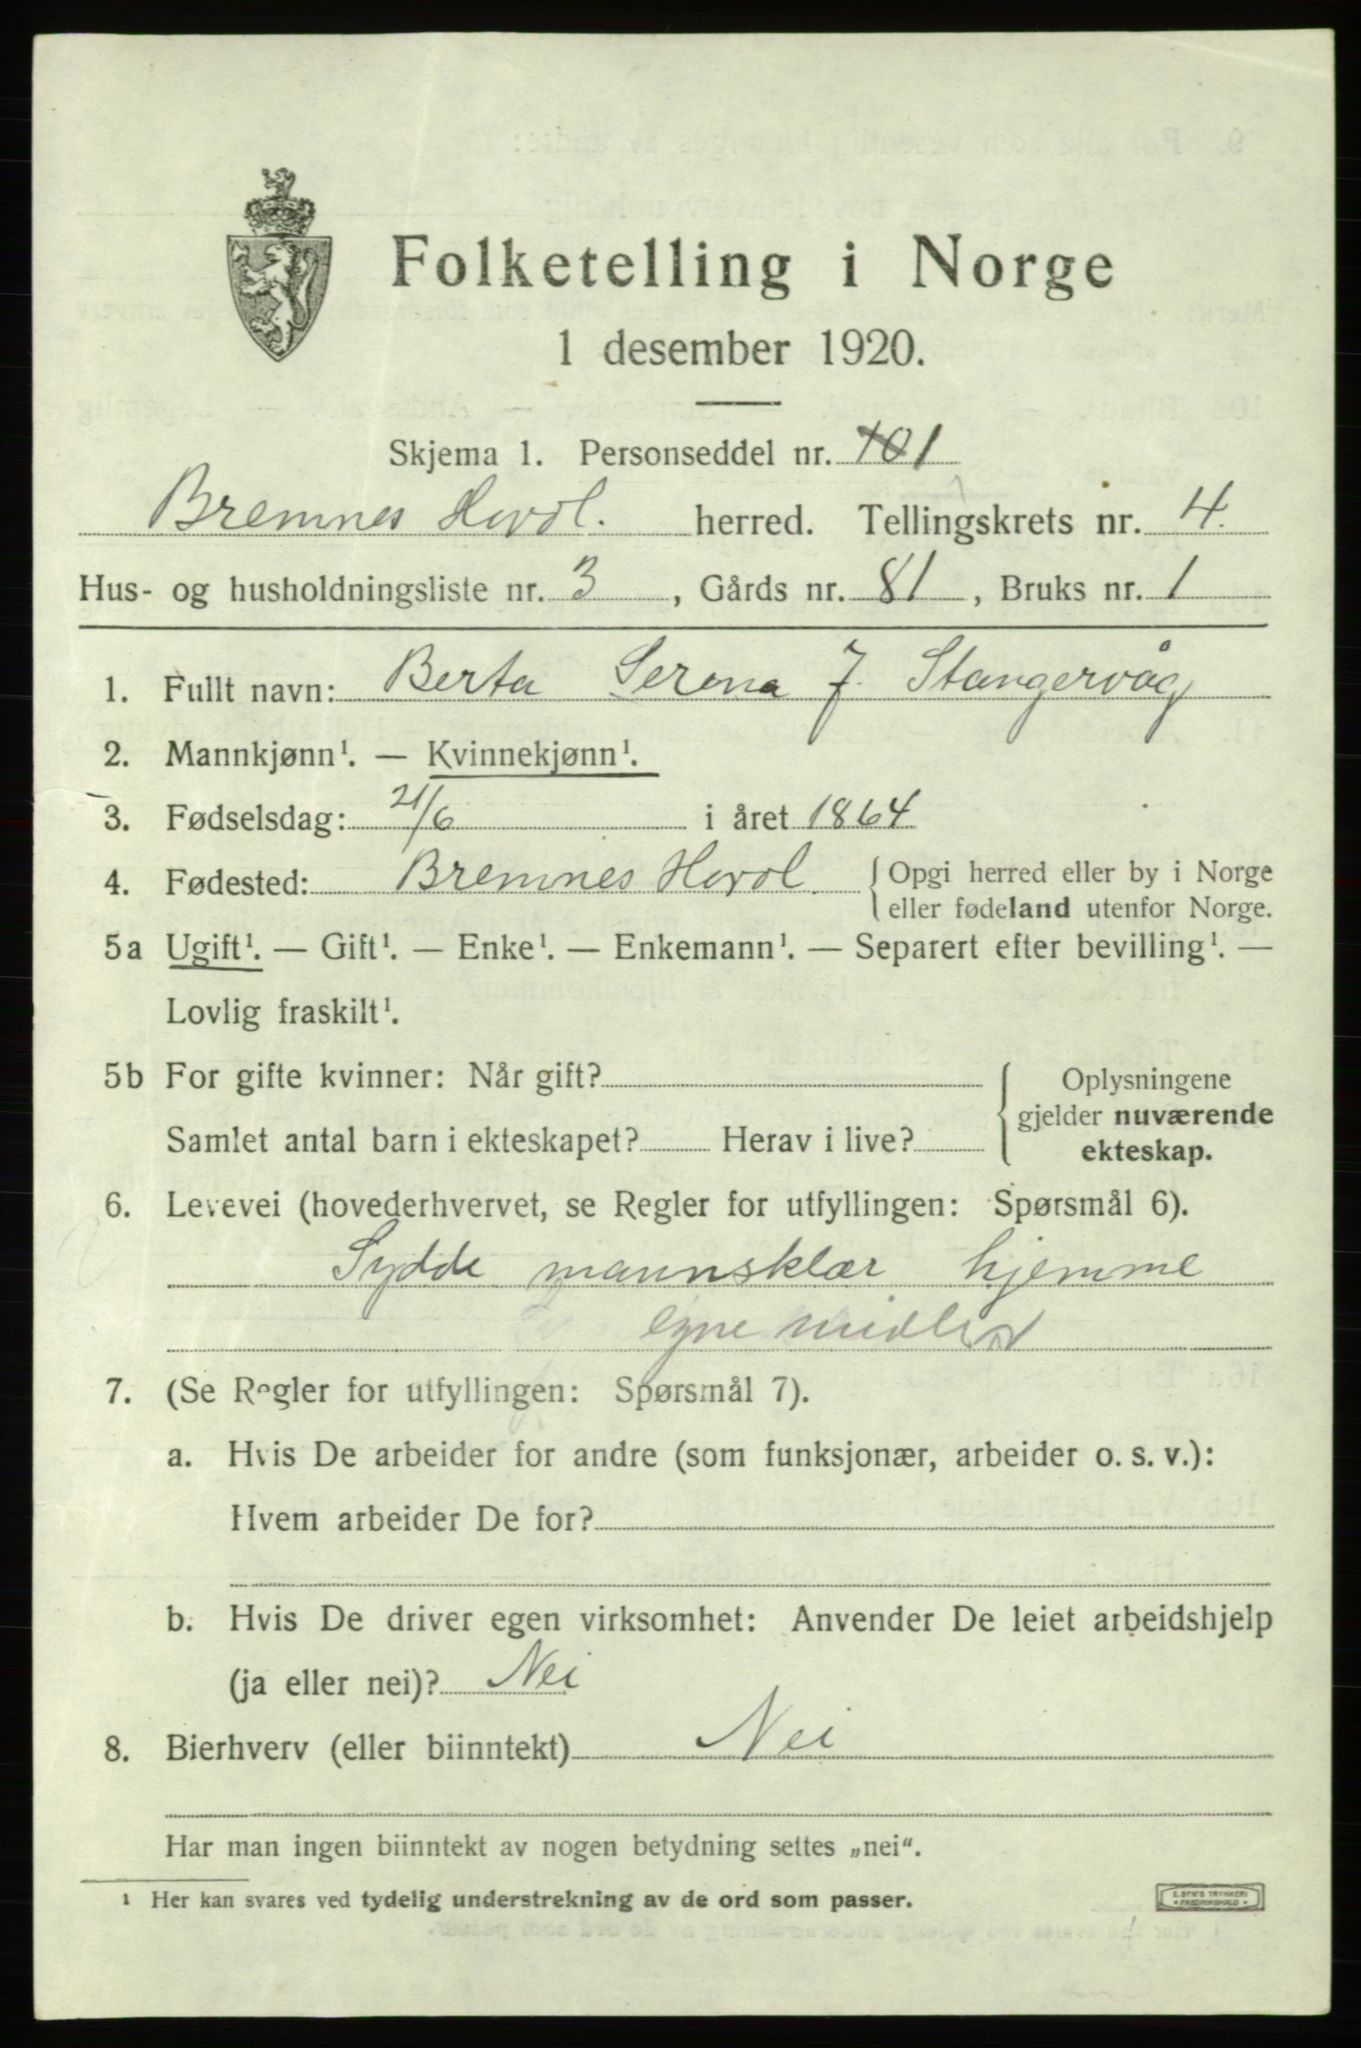 Folketelling i Norge
1 desember 1920.
Skjema 1. Personseddel nr. 101
Bremnes Hordl. herred. Tellingskrets nr. 4.
Hus- og husholdningsliste nr. 3, Gårds nr. 81, Bruks nr. 1
1. Fullt navn: Berta Serena J. Stangervåg
2. Mannkjønn¹. — Kvinnekjønn¹.
3. Fødselsdag: 21/6 i året 1864
4. Fødested: Bremnes Hordl. { Opgi herred eller by i Norge
eller fødeland utenfor Norge.
5a Ugift¹. — Gift¹. — Enke¹. — Enkemann¹. — Separert efter bevilling¹. —
Lovlig fraskilt¹.
5b For gifte kvinner: Når gift? { Oplysningene
gjelder nuværende
Samlet antal barn i ekteskapet? Herav i live? ekteskap.
6. Levevei (hovederhvervet, se Regler for utfyllingen: Spørsmål 6).
Sydde mannsklær hjemme
egne midler
7. (Se Regler for utfyllingen: Spørsmål 7).
a. Hvis De arbeider for andre (som funksjonær, arbeider o. s. v.):
Hvem arbeider De for?
b. Hvis De driver egen virksomhet: Anvender De leiet arbeidshjelp
(ja eller nei)? Nei
8. Bierhverv (eller biinntekt) Nei
Har man ingen biinntekt av nogen betydning settes „nei“.
¹ Her kan svares ved tydelig understrekning av de ord som passer.